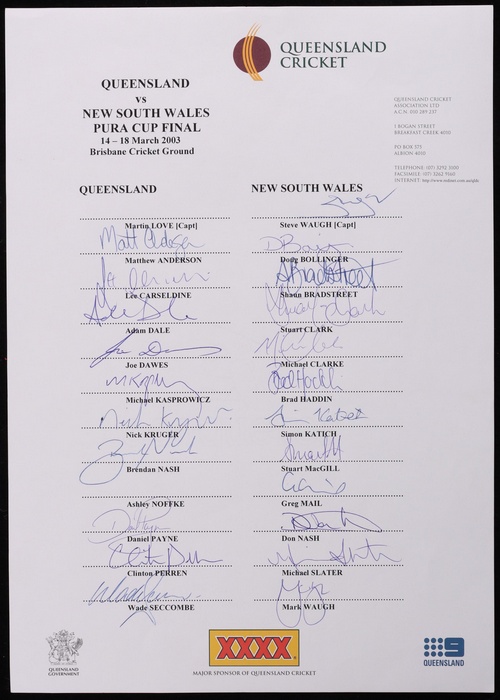 QUEENSLAND
CRICKET
QUEENSLAND
vs
NEW SOUTH WALES
PURA CUP FINAL
14 – 18 March 2003
Brisbane Cricket Ground
QUEENSLAND CRICKET
ASSOCIATION LTD
1 BOGAN STREET
BREAKFAST CREEK 4010
PO BOX 575
ALBION 4010
QUEENSLAND
NEW SOUTH WALES
Martin LOVE [Capt]
Steve WAUGH [Capt]
Matthew ANDERSON
Doug BOLLINGER
Lee CARSELDINE
Shaun BRADSTREET
Adam DALE
Stuart CLARK
Joe DAWES
Michael CLARKE
Michael KASPROWICZ
Brad HADDIN
Nick KRUGER
Simon KATICH
Brendan NASH
Stuart MacGILL
Ashley NOFFKE
Greg MAIL
Daniel PAYNE
Don NASH
Clinton PERREN
Michael SLATER
Wade SECCOMBE
Mark WAUGH
QUEENSLAND
GOVERNMENT
XXXX
MAJOR SPONSOR OF QUEENSLAND CRICKET
9
QUEENSLAND